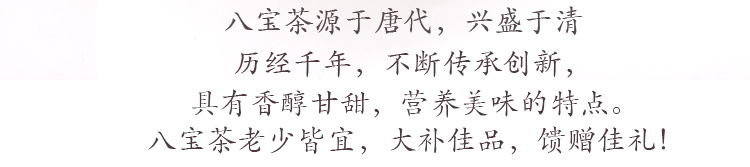 八宝茶源于唐代，兴盛于清
历经千年，不断传承创新，
具有香醇甘甜，营养美味的特点。
八宝茶老少皆宜，大补佳品，馈赠佳礼!